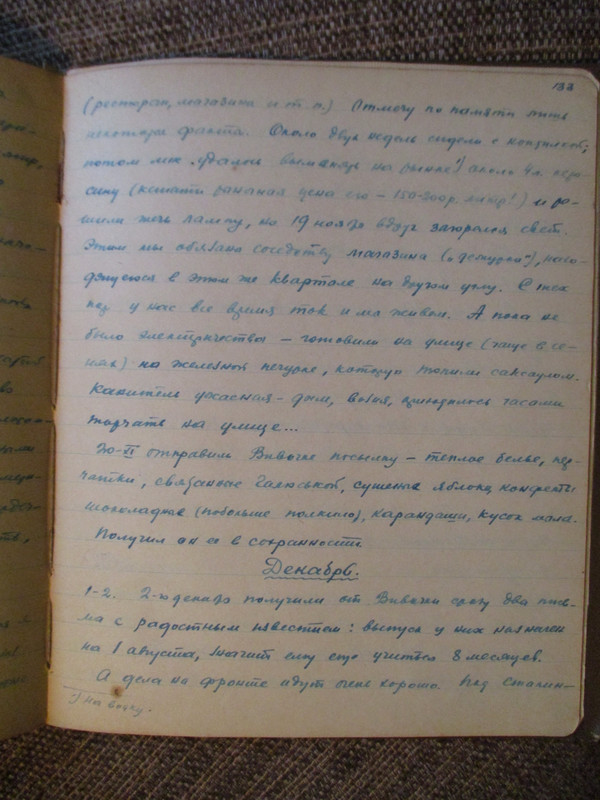 133
(ресторан, магазины и т. п.) Отмечу по памяти лишь
некоторые факты. Около двух недель сидели с коптилкой;
потом мне удалось выменять на рынке ¹) около 4 л. керо-
сину (кстати рыночная цена его – 150-200 р. литр!) и ре-
шили жечь лампу, но 19 ноября вдруг загорелся свет.
Этим мы обязаны соседству магазина („детмара"), нахо-
дящегося в этом же квартале на другом углу. С тех
пор у нас все время ток и мы живем. А пока не
было электричества – готовили на улице (чаще в се-
нях) на железной печурке, которую топили саксаулом.
Канитель ужасная – дым, возня, приходилось часами
торчать на улице...
30-XI отправили Вивочке посылку – теплое белье, пер-
чатки, связанные Галюськой, сушеные яблоки, конфекты
шоколадные (побольше полкило), карандаши, кусок мыла.
Получил он ее в сохранности
Декабрь.
1-2. 2-го декабря получили от Вивочки сразу два пись-
ма с радостным известием: выпуск у них назначен
на 1 августа, значит ему еще учиться 8 месяцев.
А дела на фронте идут очень хорошо. Под Сталин-
¹) на водку.